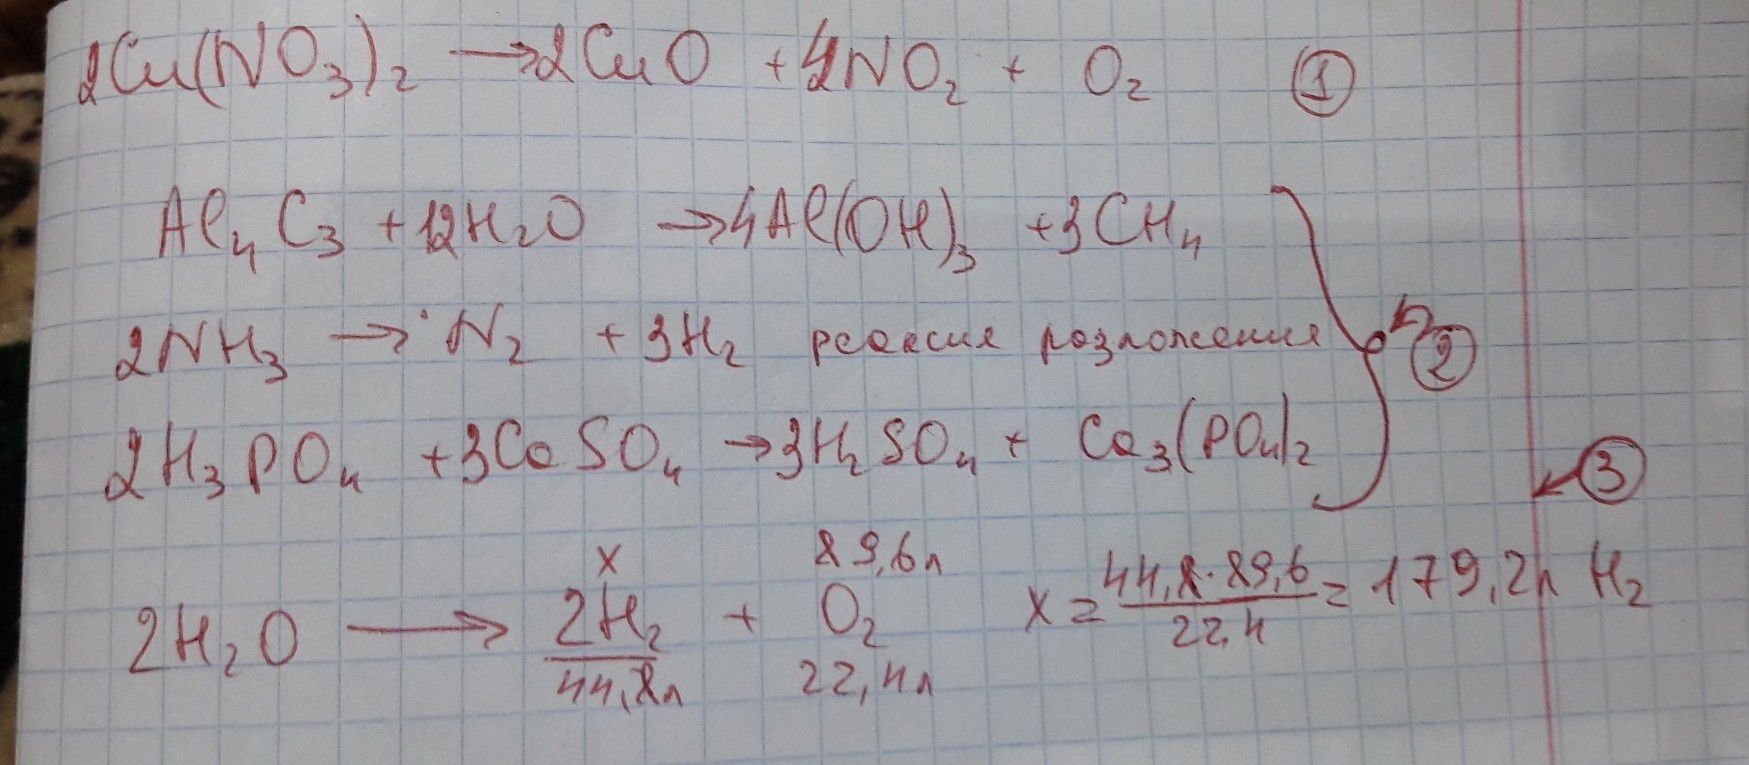 2Cu(NO₃)₂ → 2CuO + 4NO₂ + O₂ ①
Al₄C₃ + 12H₂O → 4Al(OH)₃ + 3CH₄
2NH₃ → N₂ + 3H₂ реакция разложения ②
2H₃PO₄ + 3CaSO₄ → 3H₂SO₄ + Ca₃(PO₄)₂
③
x 89,6л
2H₂O → 2H₂ + O₂ x = 44,8·89,6/22,4 = 179,2л H₂
44,8л 22,4л